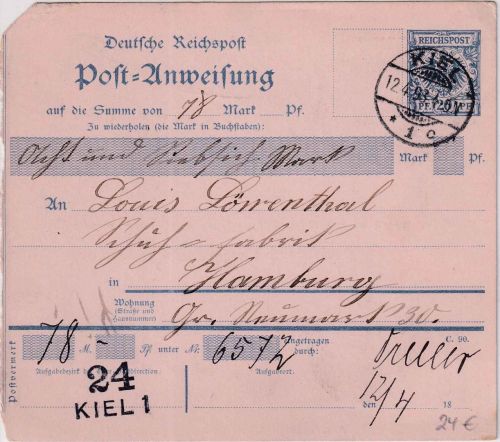 Deutsche Reichspost
REICHSPOST
KIEL
Post-Anweisung
12.4.
auf die Summe von 78 Mark Pf.
Zu wiederholen (die Mark in Buchstaben):
Acht und Siebzich Mark Mark Pf.
An Louis Löwenthal
Schuh-fabrik
in Hamburg
Wohnung
(Straße und Hausnummer)
Gr. Neumarkt 30.
C. 90.
Postvermerk 78 - M. Pf. unter Nr. 6572 Eingetragen durch:
Aufgabeort.
24
KIEL 1
den 12/4 18
24 €